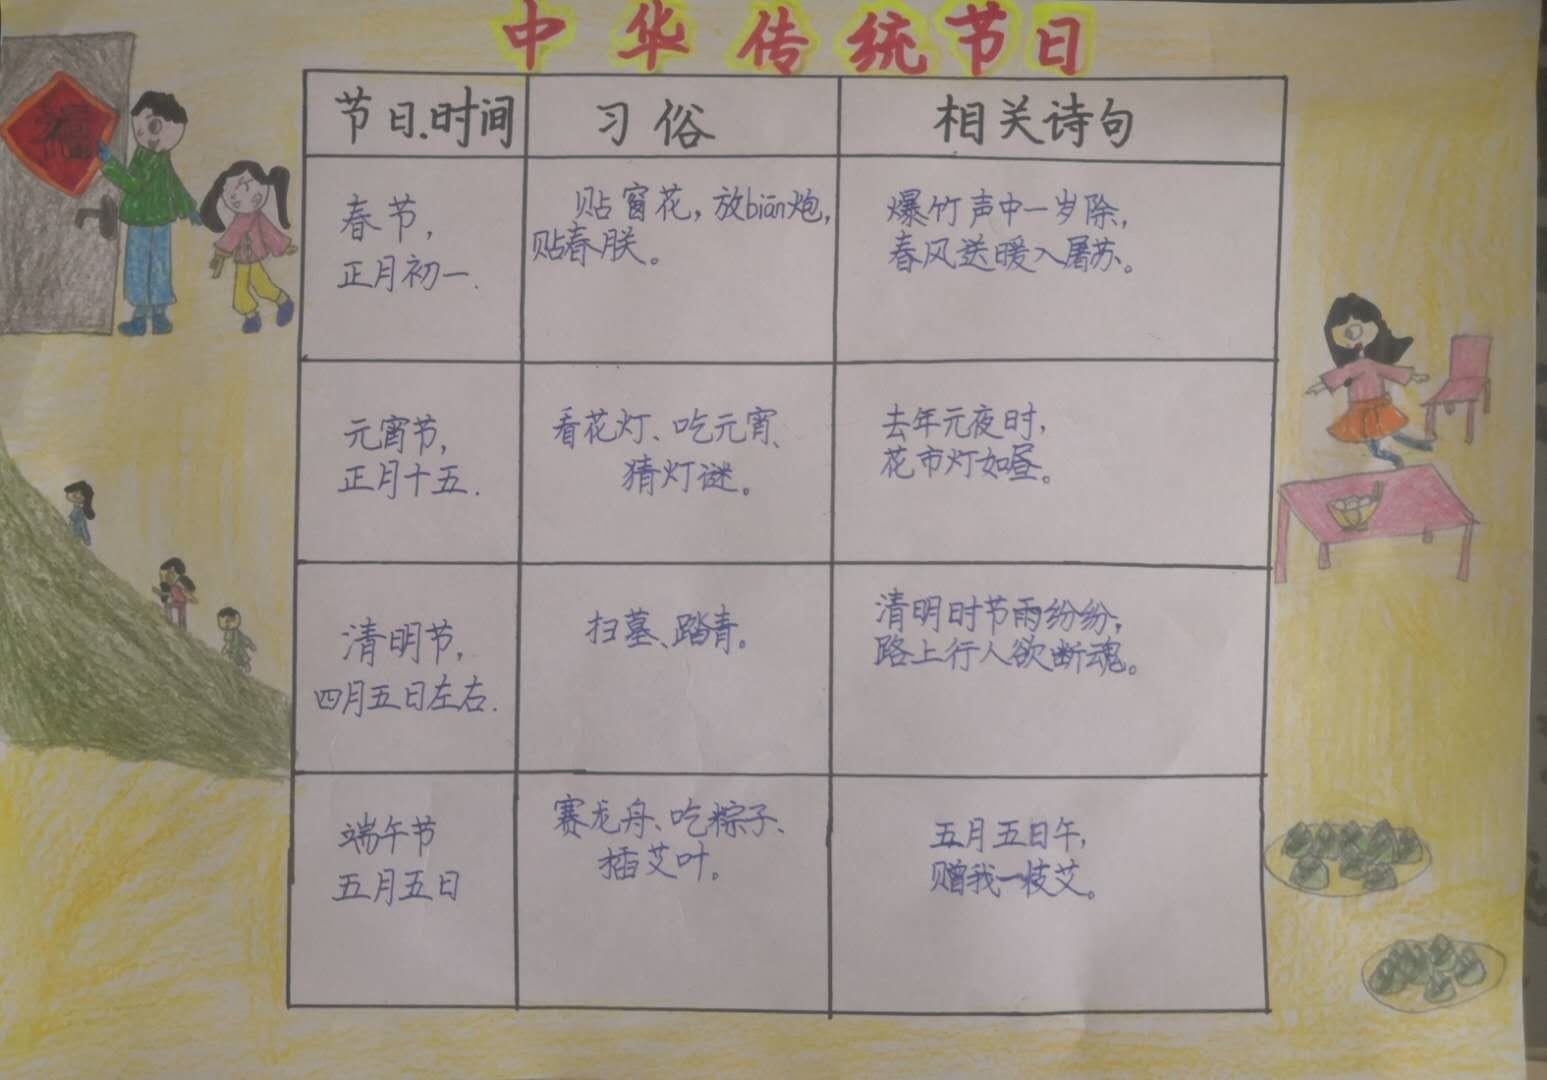 中华传统节日
福
节日.时间 习俗 相关诗句
春节,
正月初一.
贴窗花,放biān炮,
贴春朕。
爆竹声中一岁除,
春风送暖入屠苏。
元宵节,
正月十五.
看花灯、吃元宵、
猜灯谜。
去年元夜时,
花市灯如昼。
清明节,
四月五日左右.
扫墓、踏青。
清明时节雨纷纷,
路上行人欲断魂。
端午节
五月五日
赛龙舟、吃粽子、
插艾叶。
五月五日午,
赠我一枝艾。